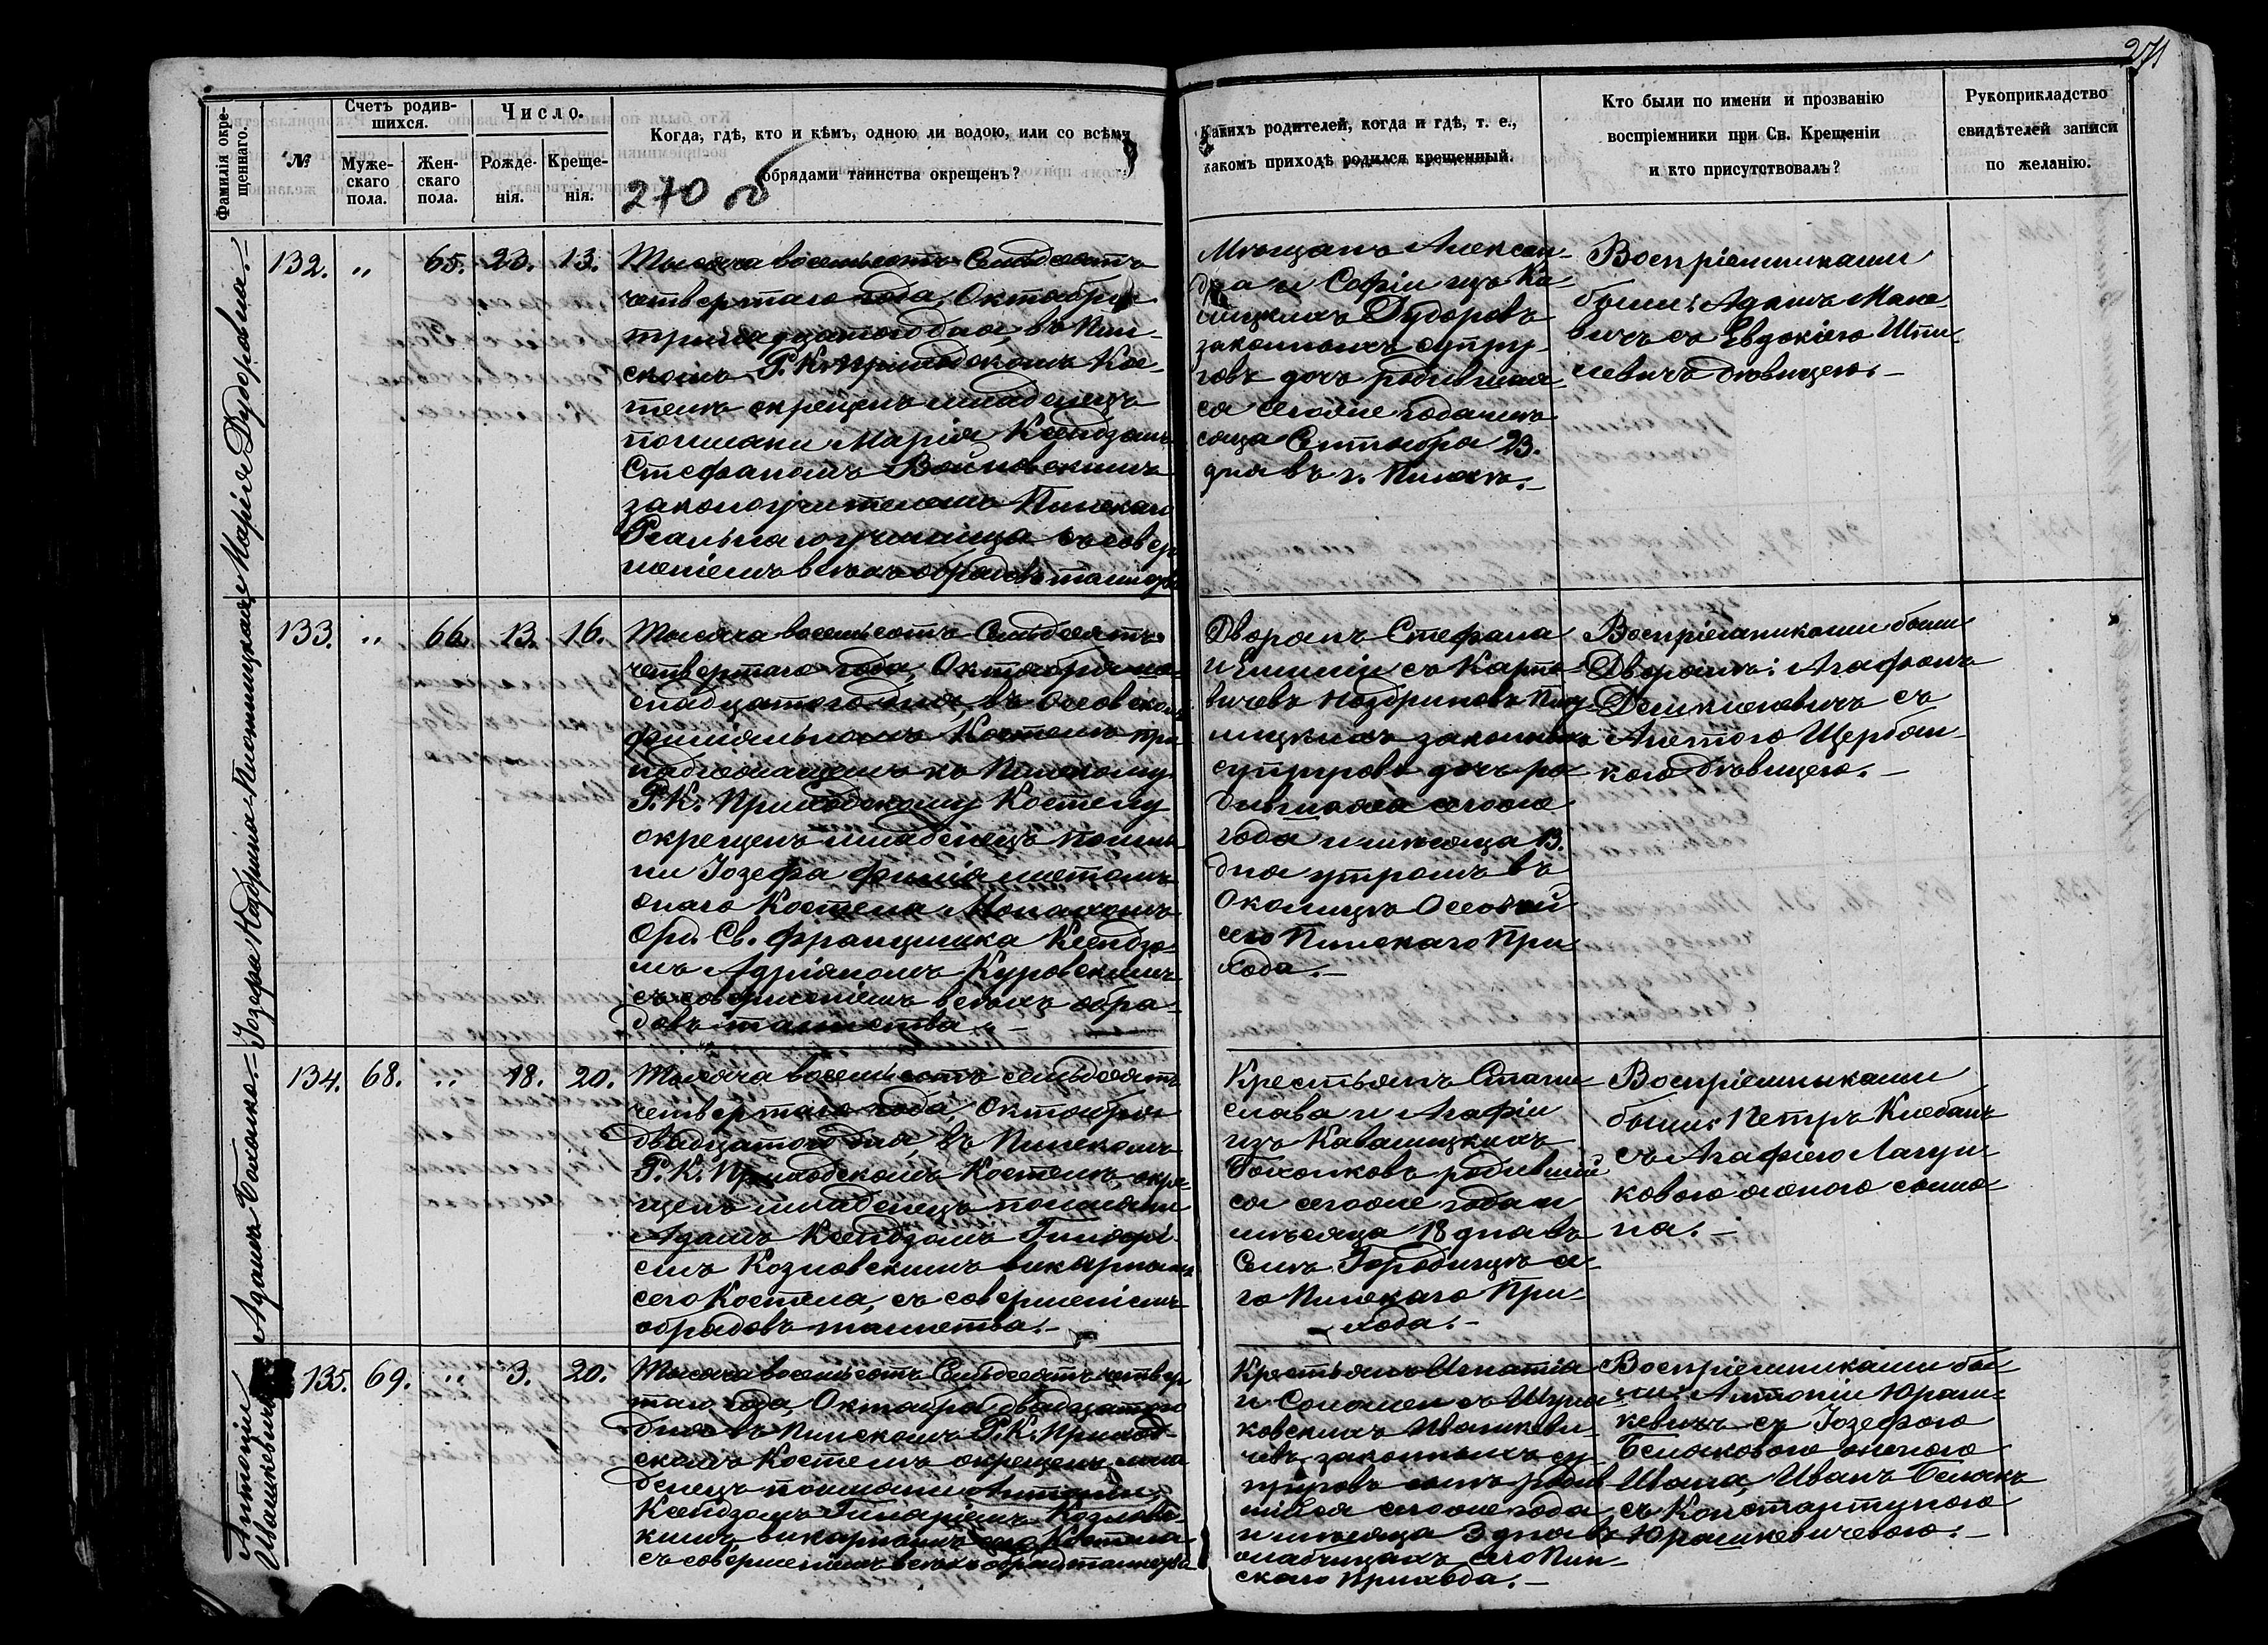 271
Фамилія окре-
щеннаго.
№
Счетъ родив-
шихся.
Муже-
скаго
пола.
Жен-
скаго
пола.
Число.
Рожде-
нія.
Креще-
нія.
Когда, гдѣ, кто и кѣмъ, одною ли водою, или со всѣми
обрядами таинства окрещенъ?
270 об
Какихъ родителей, когда и гдѣ, т. е.,
какомъ приходѣ родился крещенный.
Кто были по имени и прозванію
воспріемники при Св. Крещеніи
и кто присутствовалъ?
Рукоприкладство
свидѣтелей записи
по желанію.
Марія Дудоровна.—
132. „ 65. 23. 13.
Тысяча восемьсотъ Семьдесятъ
четвертаго года, Октября
тринадцатого дня, въ Пин-
скомъ Р. К. Приходскомъ Кос-
телѣ окрещенъ младенецъ
по имени Марія Ксендзомъ
Стефаномъ Войновскимъ
законоучителемъ Пинскаго
Реальнаго училища съ совер
шеніемъ всѣхъ обрядовъ таинства
Мѣщанъ Алексан-
дра и Софіи изъ Ка-
Дудоровъ
законныхъ супру-
говъ дочь родившая
ся сего же года мѣ
сяца Сентября 23.
дня въ г. Пинскѣ.—
Воспріемниками
были: Адамъ Маке-
вичъ съ Евдокіею Шпи-
левичъ дѣвицею.—
Іозефа Нодрина-Плотницкая
133. „ 66. 13. 16.
Тысяча восемьсотъ Семьдесятъ
четвертаго года, Октября ше-
снадцатого дня, въ Осовском
филіальномъ Костелѣ при
надлежащемъ къ Пинскому
Р. К. Приходскому Костелу
окрещенъ младенецъ по име
ни Іозефа филіалистомъ
онаго Костела Монахомъ
Орд. Св. Францишка Ксендзо-
мъ Адріаномъ Куровскимъ
съ совершеніемъ всѣхъ обря-
довъ таинства.—
Дворянъ Стефана
и Емиліи съ Карпо-
вичевъ Нодриновъ Плот
ницкихъ законныхъ
супруговъ дочь ро
дившаяся сего же
года и мѣсяца 13.
дня утромъ въ
Околицѣ Осовой
сего Пинскаго При
хода.—
Воспріемниками были
Дворяне: Агафонъ
съ
Анетою Щербин-
кою дѣвицею.—
Адамъ Бохонко.—
134. 68. „ 18. 20.
Тысяча восемьсотъ семьдесятъ
четвертаго года Октября
двадцатого дня, въ Пинскомъ
Р. К. Приходскомъ Костелѣ, окре
щенъ младенецъ по имени
Адамъ Ксендзомъ Гиляріе-
емъ Козловскимъ викаріемъ
сего Костела, съ совершеніемъ
обрядовъ таинства.—
Крестьянъ Стани
слава и Агафіи
изъ Кавалицкихъ
Бохонковъ родивший
ся сего же года и
мѣсяца 18 дня въ
Селѣ Городищѣ се-
го Пинскаго При
хода.—
Воспріемниками
были: Петръ Клебанъ
съ Агафіею Лагун
ковою женою Симо-
на.—
Антоній
Ивашкевичъ
135. 69. „ 3. 20.
Тысяча восемьсотъ Семьдесятъ четвер
таго года Октября двадцатого
дня въ Пинскомъ Р. К. Приход-
скомъ Костелѣ окрещенъ мла
денецъ по имени Антоній
Ксендзомъ Гиляріемъ Козловс-
кимъ, викаріемъ сего Костела
съ совершеніемъ всѣхъ обряд. таинства
Крестьянъ Игнатія
и Соломеи съ
ковскихъ Ивашкеви-
чевъ законныхъ су-
пруговъ сынъ родив
шійся сего же года
и мѣсяца 3 дня въ
сего Пин
скаго Прихода.—
Воспріемниками бы-
ли: Антоній Юраш-
кевичъ съ Іозефою
Белюковою женою
Ивана, Иванъ Белюкъ
съ Константиною
Юрашкевичевою.—